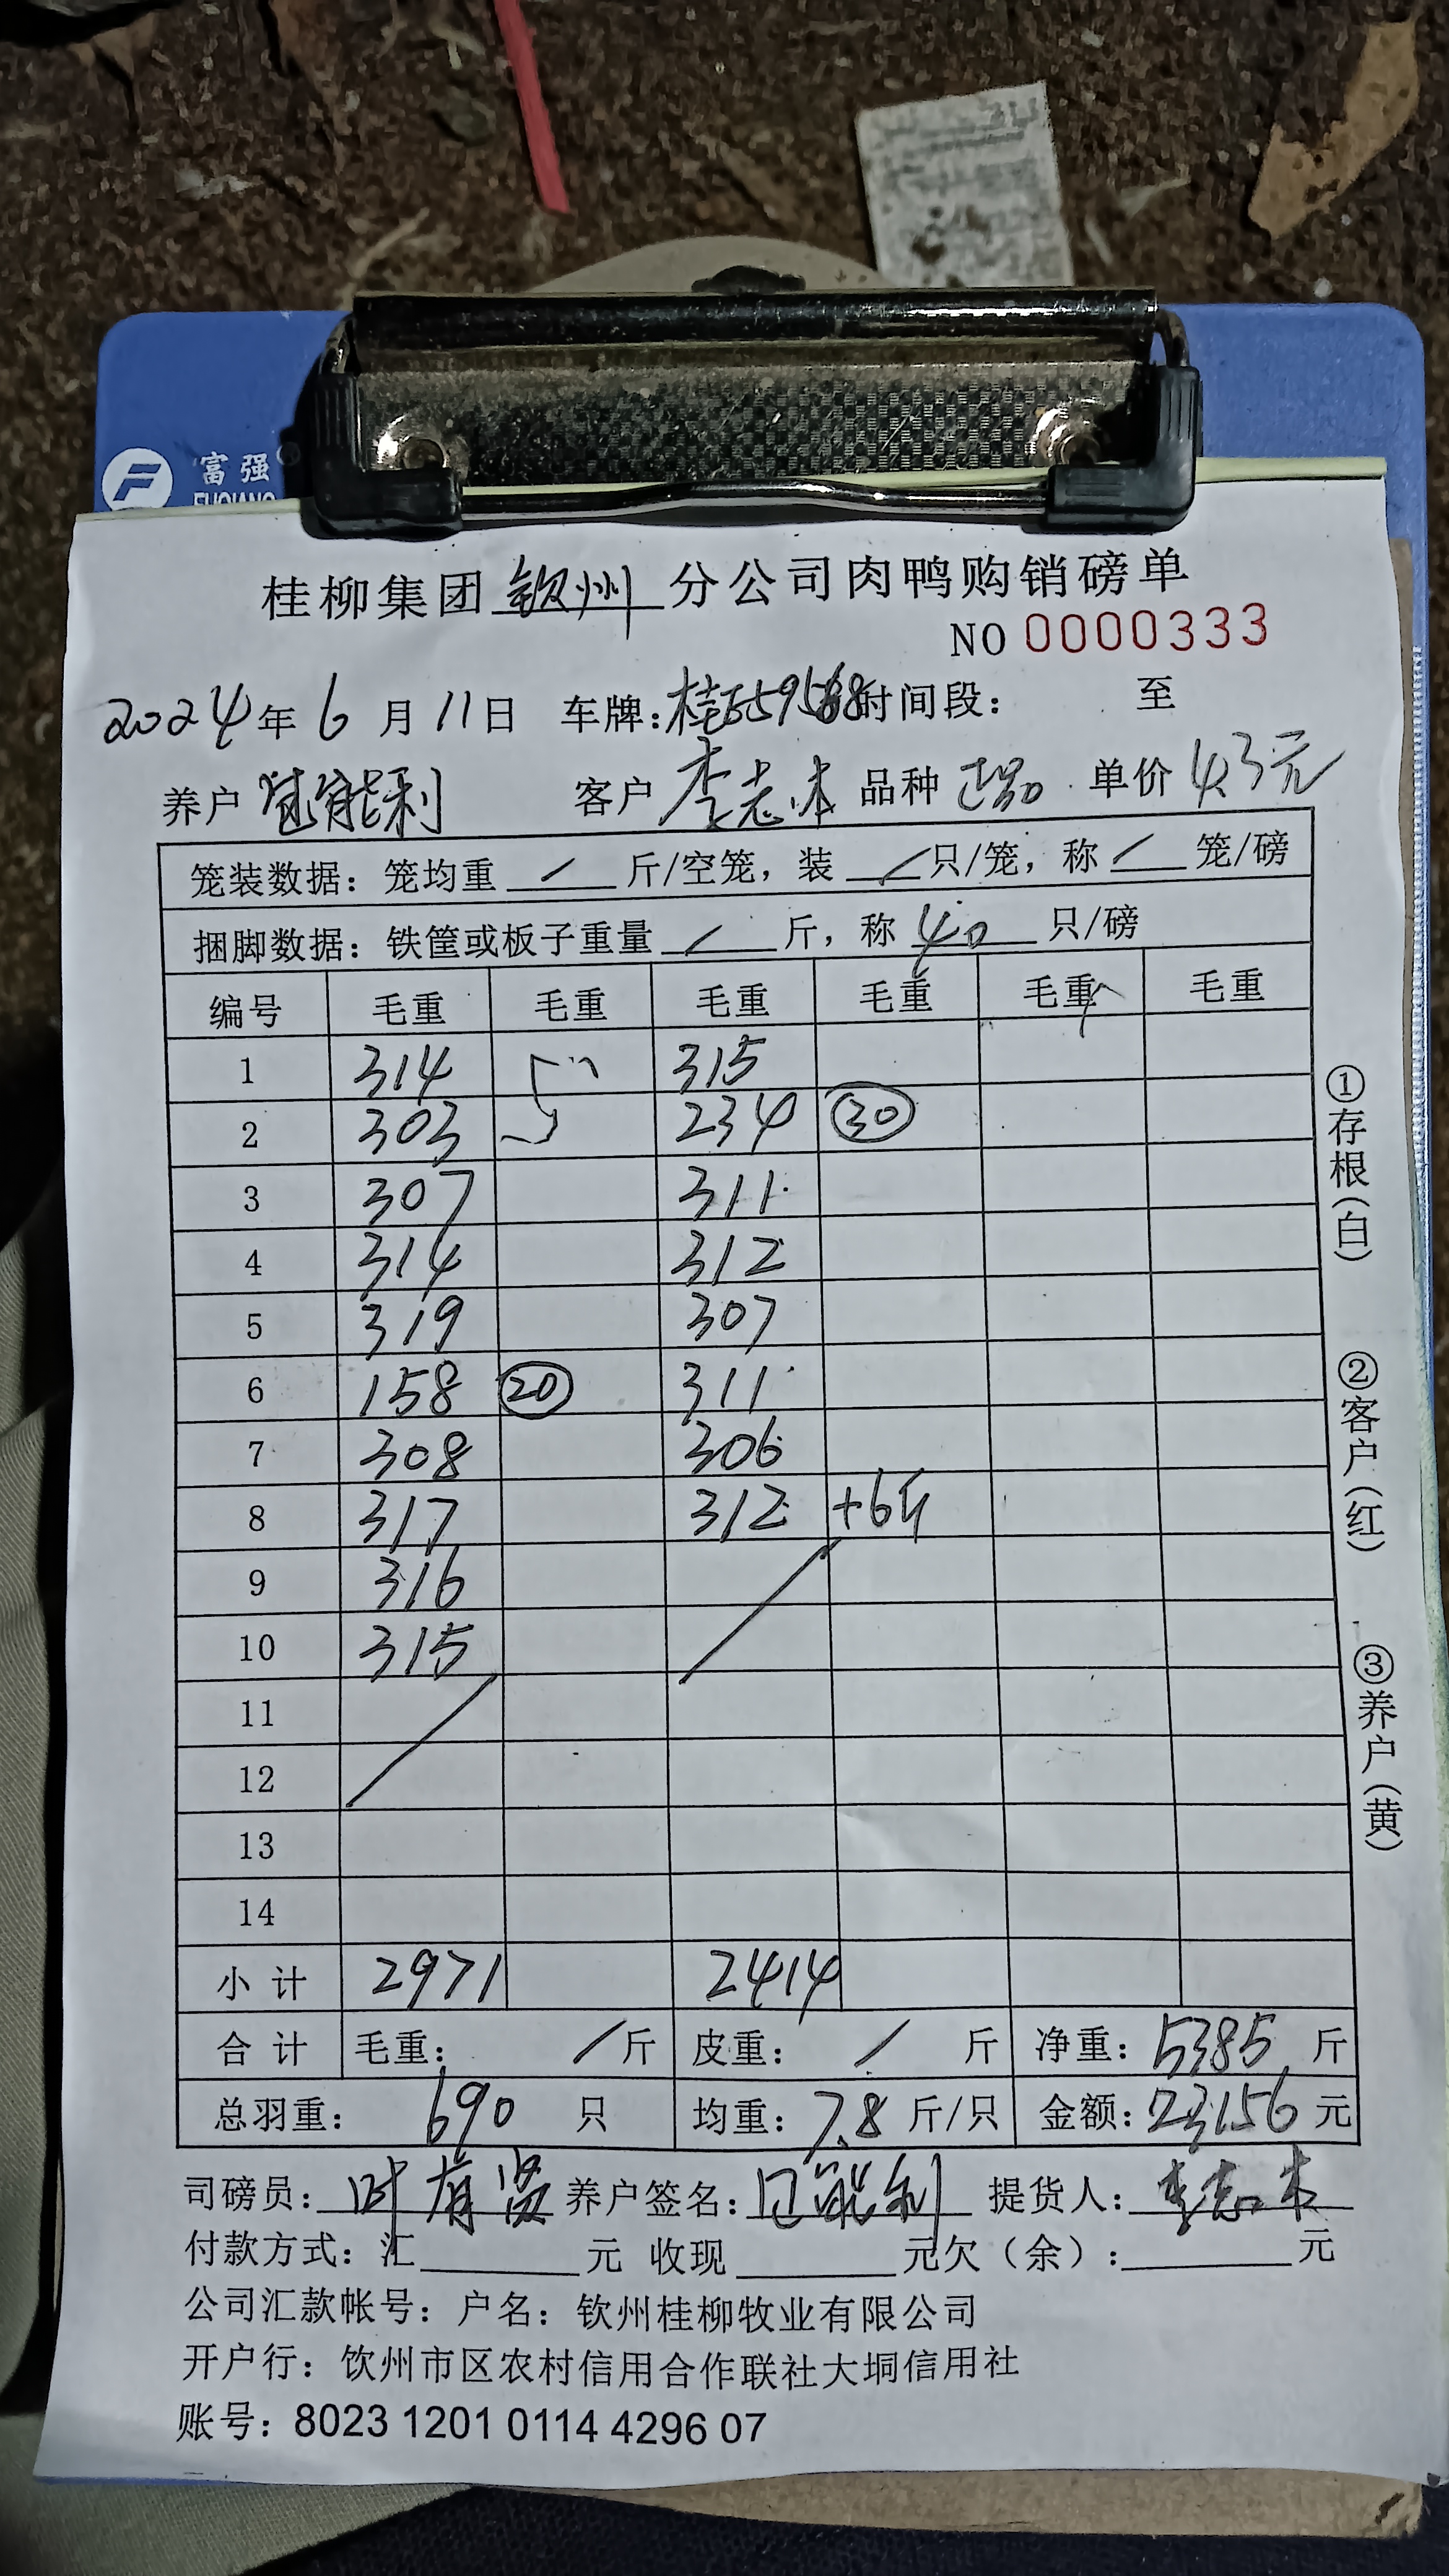 富强
桂柳集团钦州分公司肉鸭购销磅单
NO 0000333
2024年6月11日 车牌: 时间段: 至
养户 能利 客户 李志本 品种 单价 4.3元
笼装数据: 笼均重 / 斤/空笼, 装 / 只/笼, 称 / 笼/磅
捆脚数据: 铁筐或板子重量 / 斤, 称 40 只/磅
编号 毛重 毛重 毛重 毛重 毛重 毛重
1 314 315
2 303 234 30
3 307 311
4 314 312
5 319 307
6 158 20 311
7 308 306
8 317 312 +6斤
9 316
10 315
11
12
13
14
小计 2971 2414
合计 毛重: / 斤 皮重: / 斤 净重: 5385 斤
总羽重: 690 只 均重: 7.8 斤/只 金额: 23156 元
司磅员: 叶有贤 养户签名: 能利 提货人: 李志本
付款方式: 汇 元 收现 元欠(余): 元
公司汇款帐号: 户名: 钦州桂柳牧业有限公司
开户行: 钦州市区农村信用合作联社大垌信用社
账号: 8023 1201 0114 4296 07
①存根(白)
②客户(红)
③养户(黄)